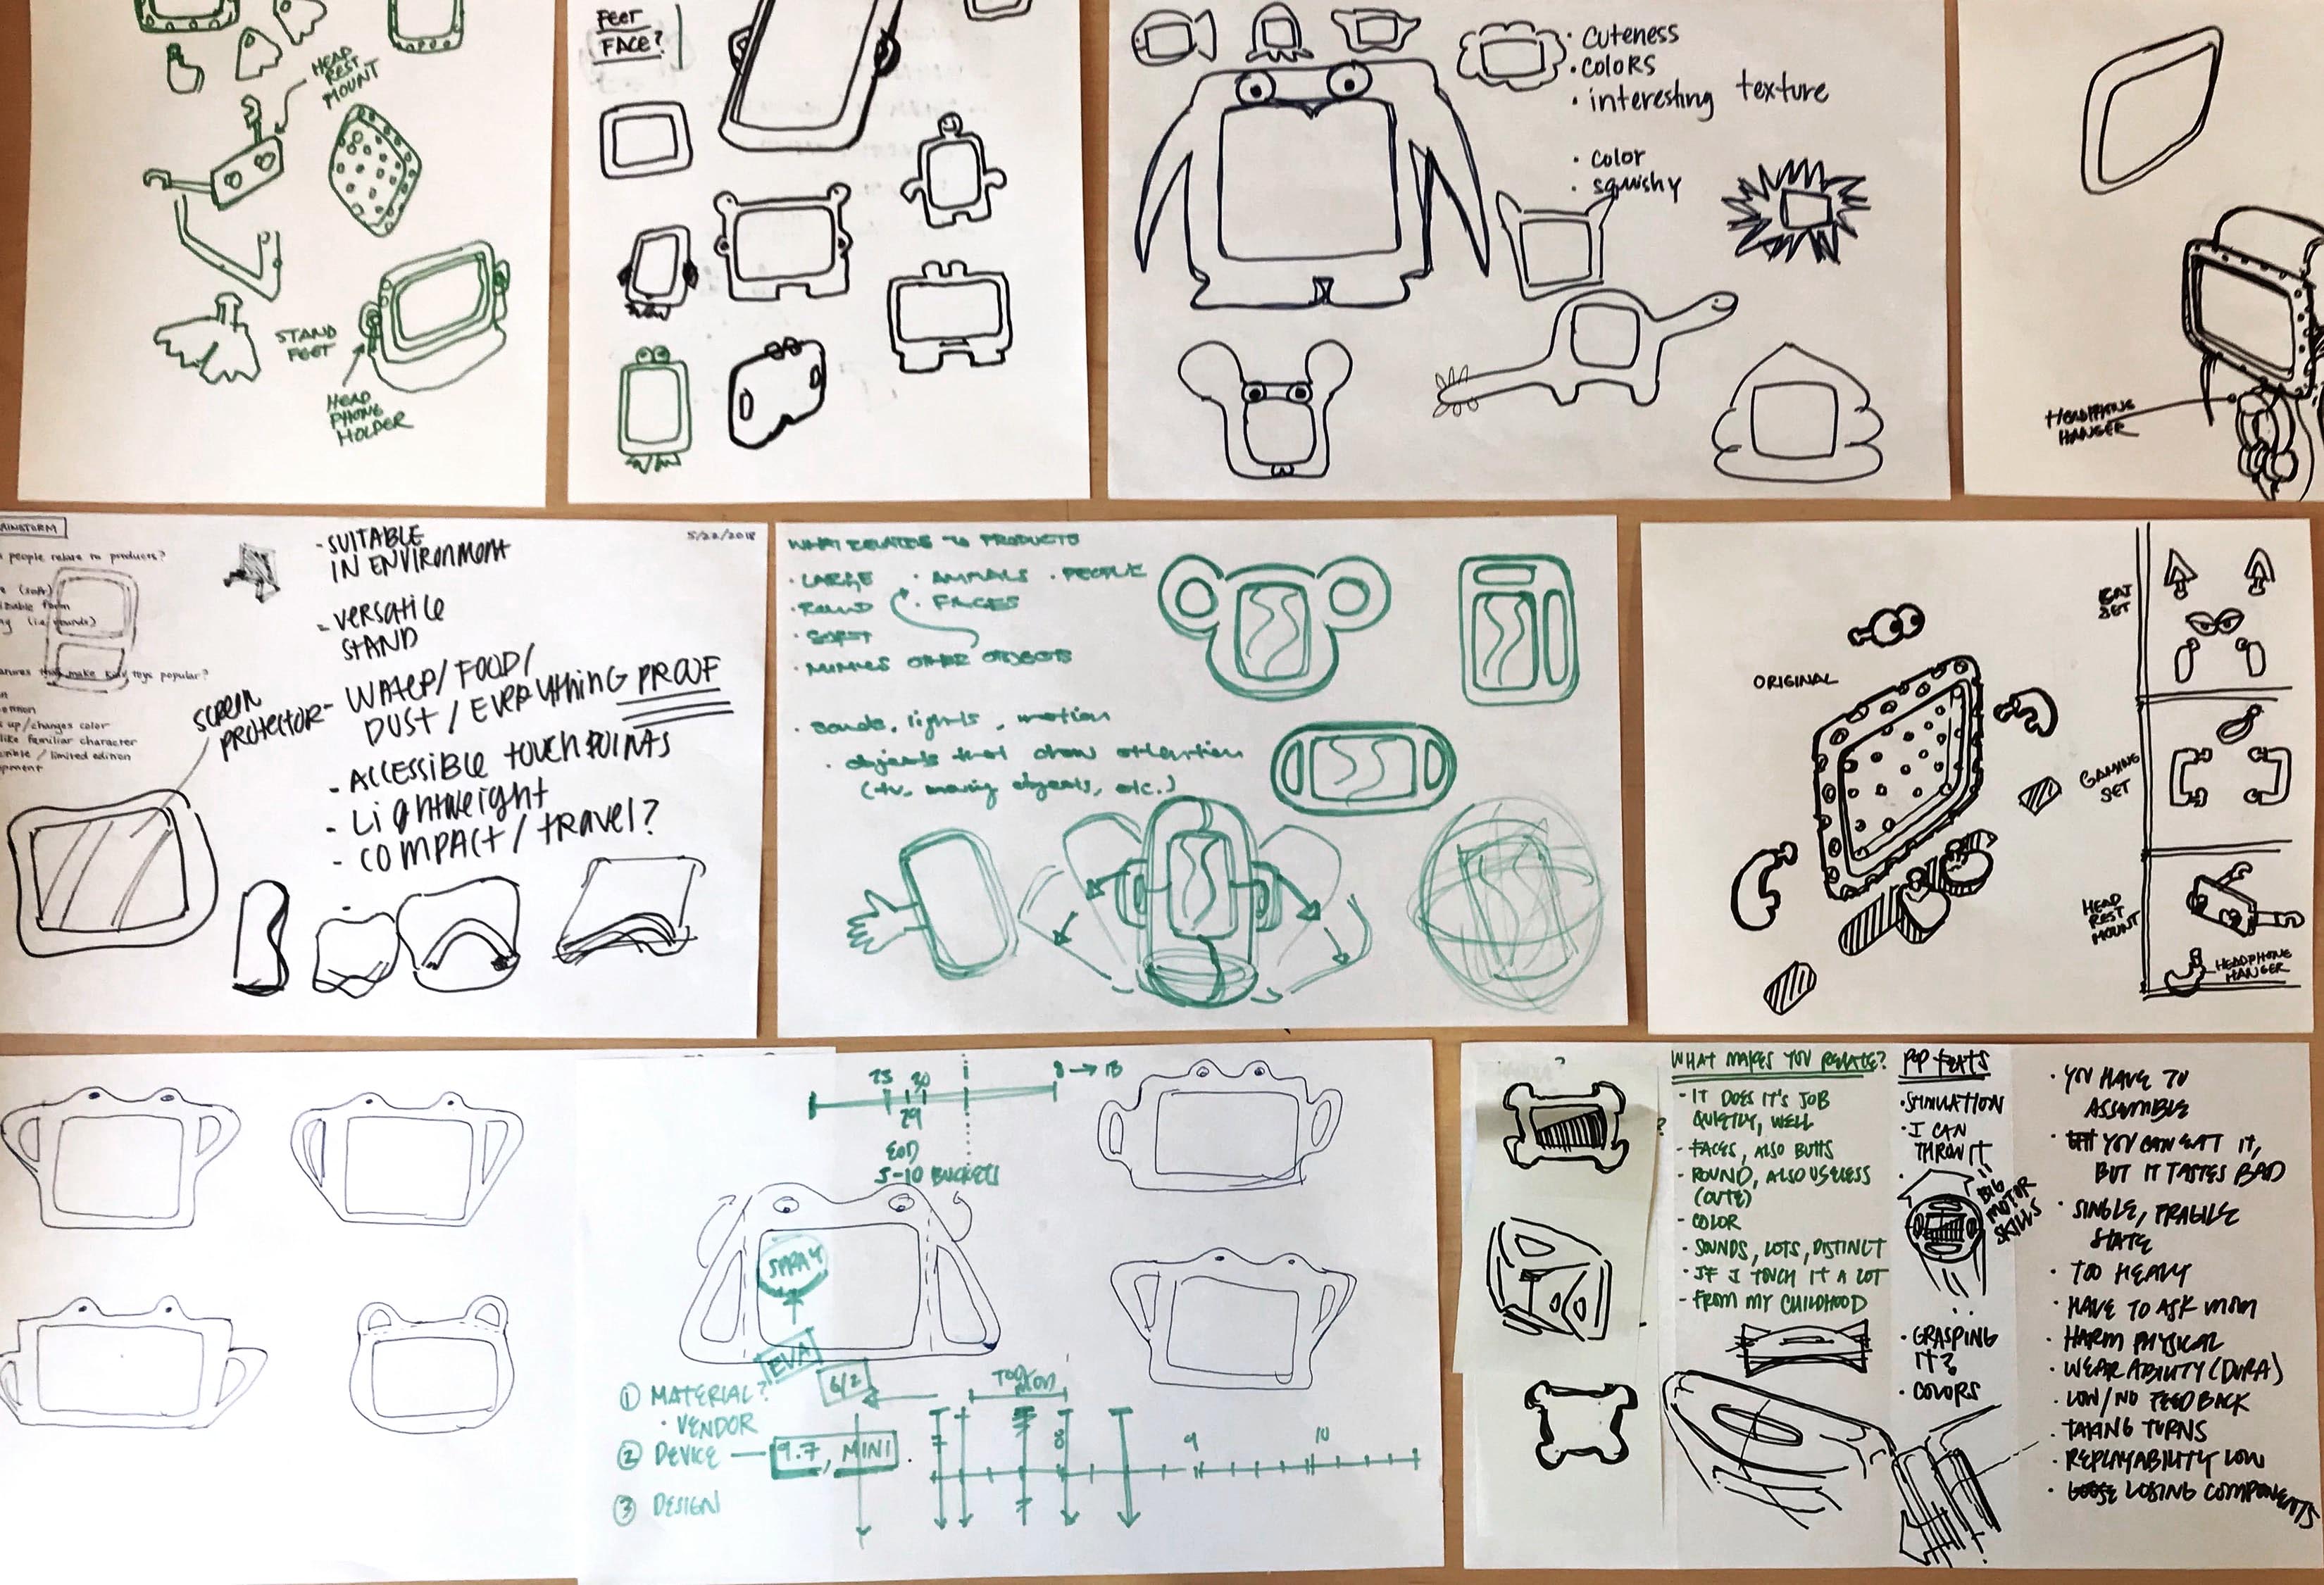 HEAD
REST
MOUNT
STAND
FEET
HEAD
PHONE
HOLDER
FEET
FACE?
• CUTENESS
• COLORS
• interesting texture
• color
• squishy
HEADPHONE
HANGER
people relate to products?
(soft)
toys popular?
up/changes color
like familiar character
/ limited edition
5/22/2018
- SUITABLE
IN ENVIRONMENT
- VERSATILE
STAND
SCREEN
PROTECTOR
- WATER/FOOD/
DUST/EVERYTHING PROOF
- ACCESSIBLE TOUCH POINTS
- Lightweight
- COMPACT/travel?
WHAT RELATES TO PRODUCTS
• LARGE • ANIMALS • PEOPLE
• ROUND • FACES
• SOFT
• MIMICS OTHER OBJECTS
• sounds, lights, motion
• objects that draw attention
(tv, moving objects, etc.)
ORIGINAL
BAT
SET
GAMING
SET
HEAD
REST
MOUNT
HEADPHONE
HANGER
25 30 1 8 → 13
29
EOD
5-10 BUCKETS
SPRAY
EVA
6/2
① MATERIAL?
• VENDOR
② DEVICE — 9.7, MINI
③ DESIGN
8 9 10
WHAT MAKES YOU RELATE?
- IT DOES IT'S JOB
QUIETLY, WELL
- FACES, ALSO BUTTS
- ROUND, ALSO USELESS
(CUTE)
- COLOR
- SOUNDS, LOTS, DISTINCT
- IF I TOUCH IT A LOT
- FROM MY CHILDHOOD
POP FEATS
• I CAN
THROW IT
BIG
MOTOR
SKILLS
• GRASPING
IT?
• COLORS
• YOU HAVE TO
ASSEMBLE
• YOU CAN EAT IT,
BUT IT TASTES BAD
• SINGLE, FRAGILE
STATE
• TOO HEAVY
• HAVE TO ASK MOM
• HARM PHYSICAL
• WEARABILITY (DURA)
• LOW/NO FEEDBACK
• TAKING TURNS
• REPLAYABILITY LOW
• LOSING COMPONENTS